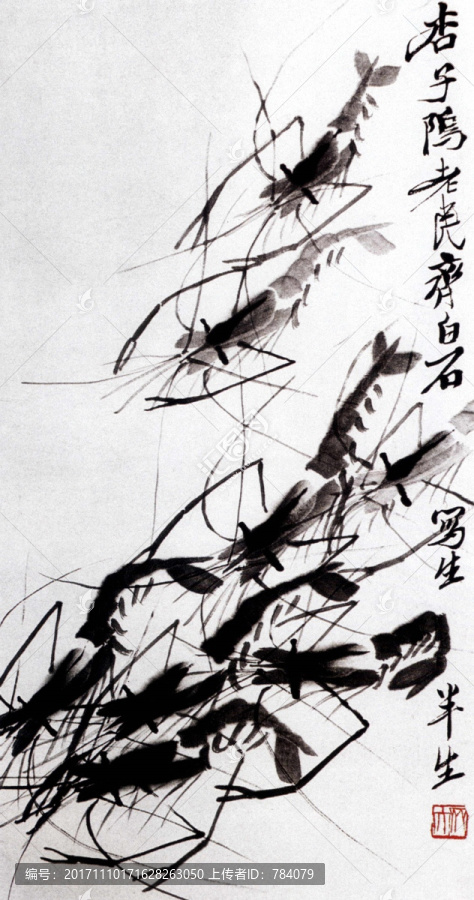 杏子隝老民齊白石
写生
半生
编号：20171110171628263050 上传者ID：784079